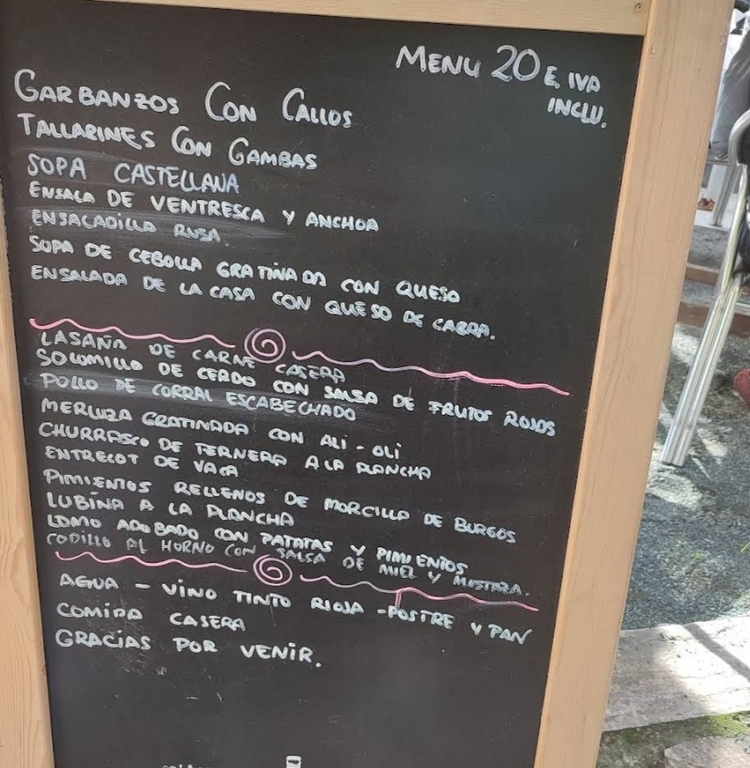 MENU 20 E. IVA
INCLU.
GARBANZOS CON CALLOS
TALLARINES CON GAMBAS
SOPA CASTELLANA
ENSALA DE VENTRESCA Y ANCHOA
ENSALADILLA RUSA.
SOPA DE CEBOLLA GRATINADA CON QUESO
ENSALADA DE LA CASA CON QUESO DE CABRA.
LASAÑA DE CARNE CASERA
SOLOMILLO DE CERDO CON SALSA DE FRUTOS ROJOS
POLLO DE CORRAL ESCABECHADO
MERLUZA GRATINADA CON ALI-OLI
CHURRASCO DE TERNERA A LA PLANCHA
ENTRECOT DE VACA
PIMIENTOS RELLENOS DE MORCILLA DE BURGOS
LUBINA A LA PLANCHA
LOMO ADOBADO CON PATATAS Y PIMIENTOS
CODILLO AL HORNO CON SALSA DE MIEL Y MOSTAZA.
AGUA - VINO TINTO RIOJA - POSTRE Y PAN
COMIDA CASERA
GRACIAS POR VENIR.